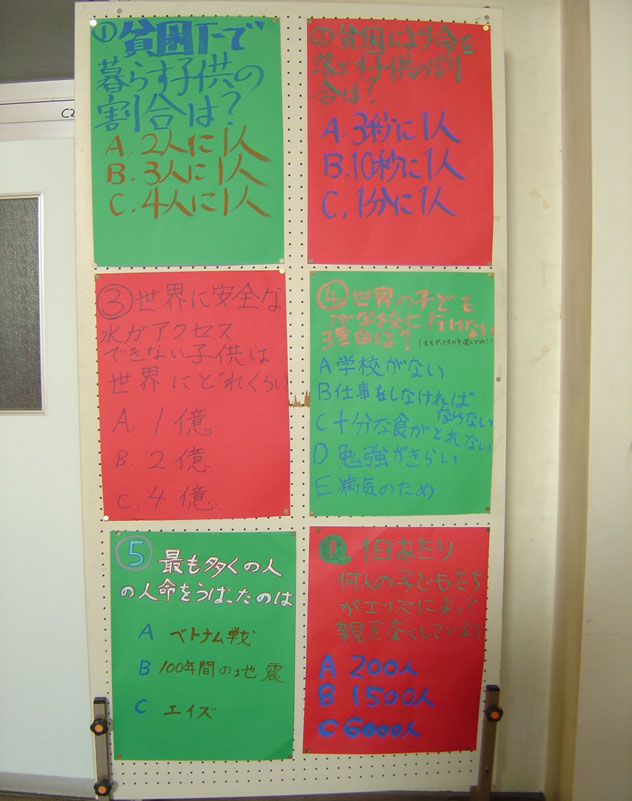 ①貧困下で
暮らす子供の
割合は?
A. 2人に1人
B. 3人に1人
C. 4人に1人
②貧困により命を
落とす子供の割
合は?
A. 3秒に1人
B. 10秒に1人
C. 1分に1人
③世界に安全な
水がアクセス
できない子供は
世界にどれくらい
A. 1億
B. 2億
C. 4億
④世界の子ども
が学校に行けない
理由は?
A 学校がない
B 仕事をしなければ
ならない
C 十分な食がとれない
D 勉強がきらい
E 病気のため
⑤ 最も多くの人
の人命をうばったのは
A ベトナム戦
B 100年間の地震
C エイズ
1日あたり
何人の子どもたち
がエイズによって
親をなくしている?
A 200人
B 1500人
C 6000人